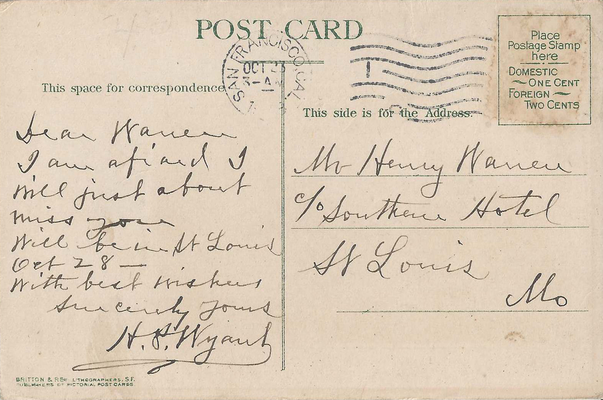 POST CARD
SAN FRANCISCO, CAL.
OCT 23
Place
Postage Stamp
here
DOMESTIC
ONE CENT
FOREIGN
TWO CENTS
This space for correspondence.
This side is for the Address.
Dear Warren
I am afriad I
will just about
miss you
Will be in St Louis
Oct 28 —
With best wishes
Sincerely yours
H. P. Wyant
Mr Henry Warren
c/o Southern Hotel
St Louis
Mo
BRITTON & REY, LITHOGRAPHERS, S.F.
PUBLISHERS OF PICTORIAL POST CARDS.